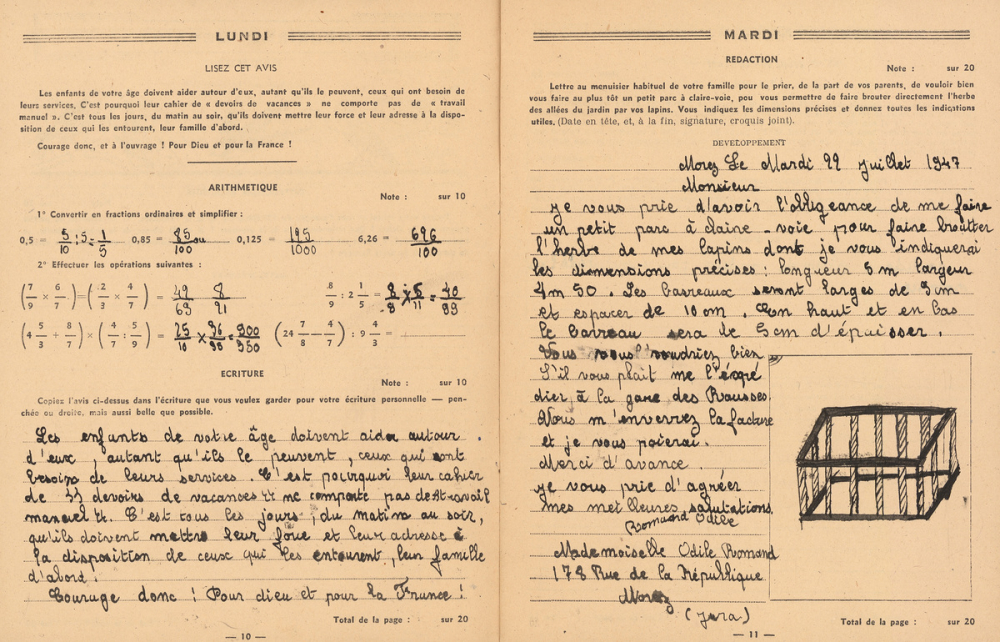 LUNDI
LISEZ CET AVIS
Les enfants de votre âge doivent aider autour d'eux, autant qu'ils le peuvent, ceux qui ont besoin de
leurs services. C'est pourquoi leur cahier de « devoirs de vacances » ne comporte pas de « travail
manuel ». C'est tous les jours, du matin au soir, qu'ils doivent mettre leur force et leur adresse à la dispo-
sition de ceux qui les entourent, leur famille d'abord.
Courage donc, et à l'ouvrage ! Pour Dieu et pour la France !
ARITHMETIQUE
Note : sur 10
1° Convertir en fractions ordinaires et simplifier :
0,5 = 5/10 : 5 = 1/5 0,85 = 85/100 ou 0,125 = 195/1000 6,26 = 626/100
2° Effectuer les opérations suivantes :
(7/9 × 6/7) = (2/3 × 4/7) = 49/63 8/21 8/9 : 2 1/5 = 8/9 × 5/11 = 40/99
(4 5/3 + 8/7) × (4/7 : 5/9) = 25/10 × 36/38 = 900/350 (24 7/8 — 4/7) : 9 4/3 =
ECRITURE
Note : sur 10
Copiez l'avis ci-dessus dans l'écriture que vous voulez garder pour votre écriture personnelle — pen-
chée ou droite, mais aussi belle que possible.
Les enfants de votre âge doivent aider autour
d'eux, autant qu'ils le peuvent, ceux qui ont
besoin de leurs services. C'est pourquoi leur cahier
de devoirs de vacances ne comporte pas de travail
manuel. C'est tous les jours, du matin au soir,
qu'ils doivent mettre leur force et leur adresse à
la disposition de ceux qui les entourent, leur famille
d'abord.
Courage donc ! Pour dieu et pour la France !
Total de la page : sur 20
— 10 —
MARDI
REDACTION
Note : sur 20
Lettre au menuisier habituel de votre famille pour le prier, de la part de vos parents, de vouloir bien
vous faire au plus tôt un petit parc à claire-voie, peu vous permettre de faire brouter directement l'herbe
des allées du jardin par vos lapins. Vous indiquez les dimensions précises et donnez toutes les indications
utiles. (Date en tête, et, à la fin, signature, croquis joint).
DEVELOPPEMENT
Morez Le Mardi 22 juillet 1947
Monsieur
je vous prie d'avoir l'obligeance de me faire
un petit parc à claire-voie pour faire broutter
l'herbe de mes lapins dont je vous indiquerai
les dimensions précises : longueur 5 m largeur
4m 50. Les barreaux seront larges de 5cm
et espacer de 10 cm. En haut et en bas
le barreau sera de 5cm d'épaisser.
Vous vous voudriez bien
S'il vous plait me l'expé
dier à la gare des Rousses.
Vous m'enverrez la facture
et je vous paierai.
Merci d'avance.
je vous prie d'agréer
mes meilleures salutations.
Romand Odile
Mademoiselle Odile Romand
178 Rue de la République
Morez
(jura)
Total de la page : sur 20
— 11 —